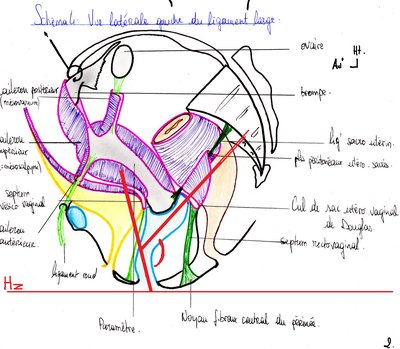 Schéma 1: Vue latérale gauche du ligament large.
ovaire
Ht.
Av
aileron postérieur
(mésovarium)
trompe.
aileron
supérieur
(mésosalpynx)
lig' sacro utérin.
plis péritonéaux utéro-sacrés
septum
vésico vaginal
Cul de sac utéro vaginal
de Douglas
aileron
antérieur
septum rectovaginal.
ligament rond
Hz
Paramètre.
Noyau fibreux central du périnée.
2.